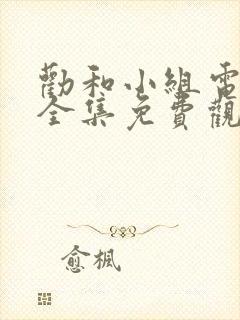 勸和小組電
全集免費觀
愈楓